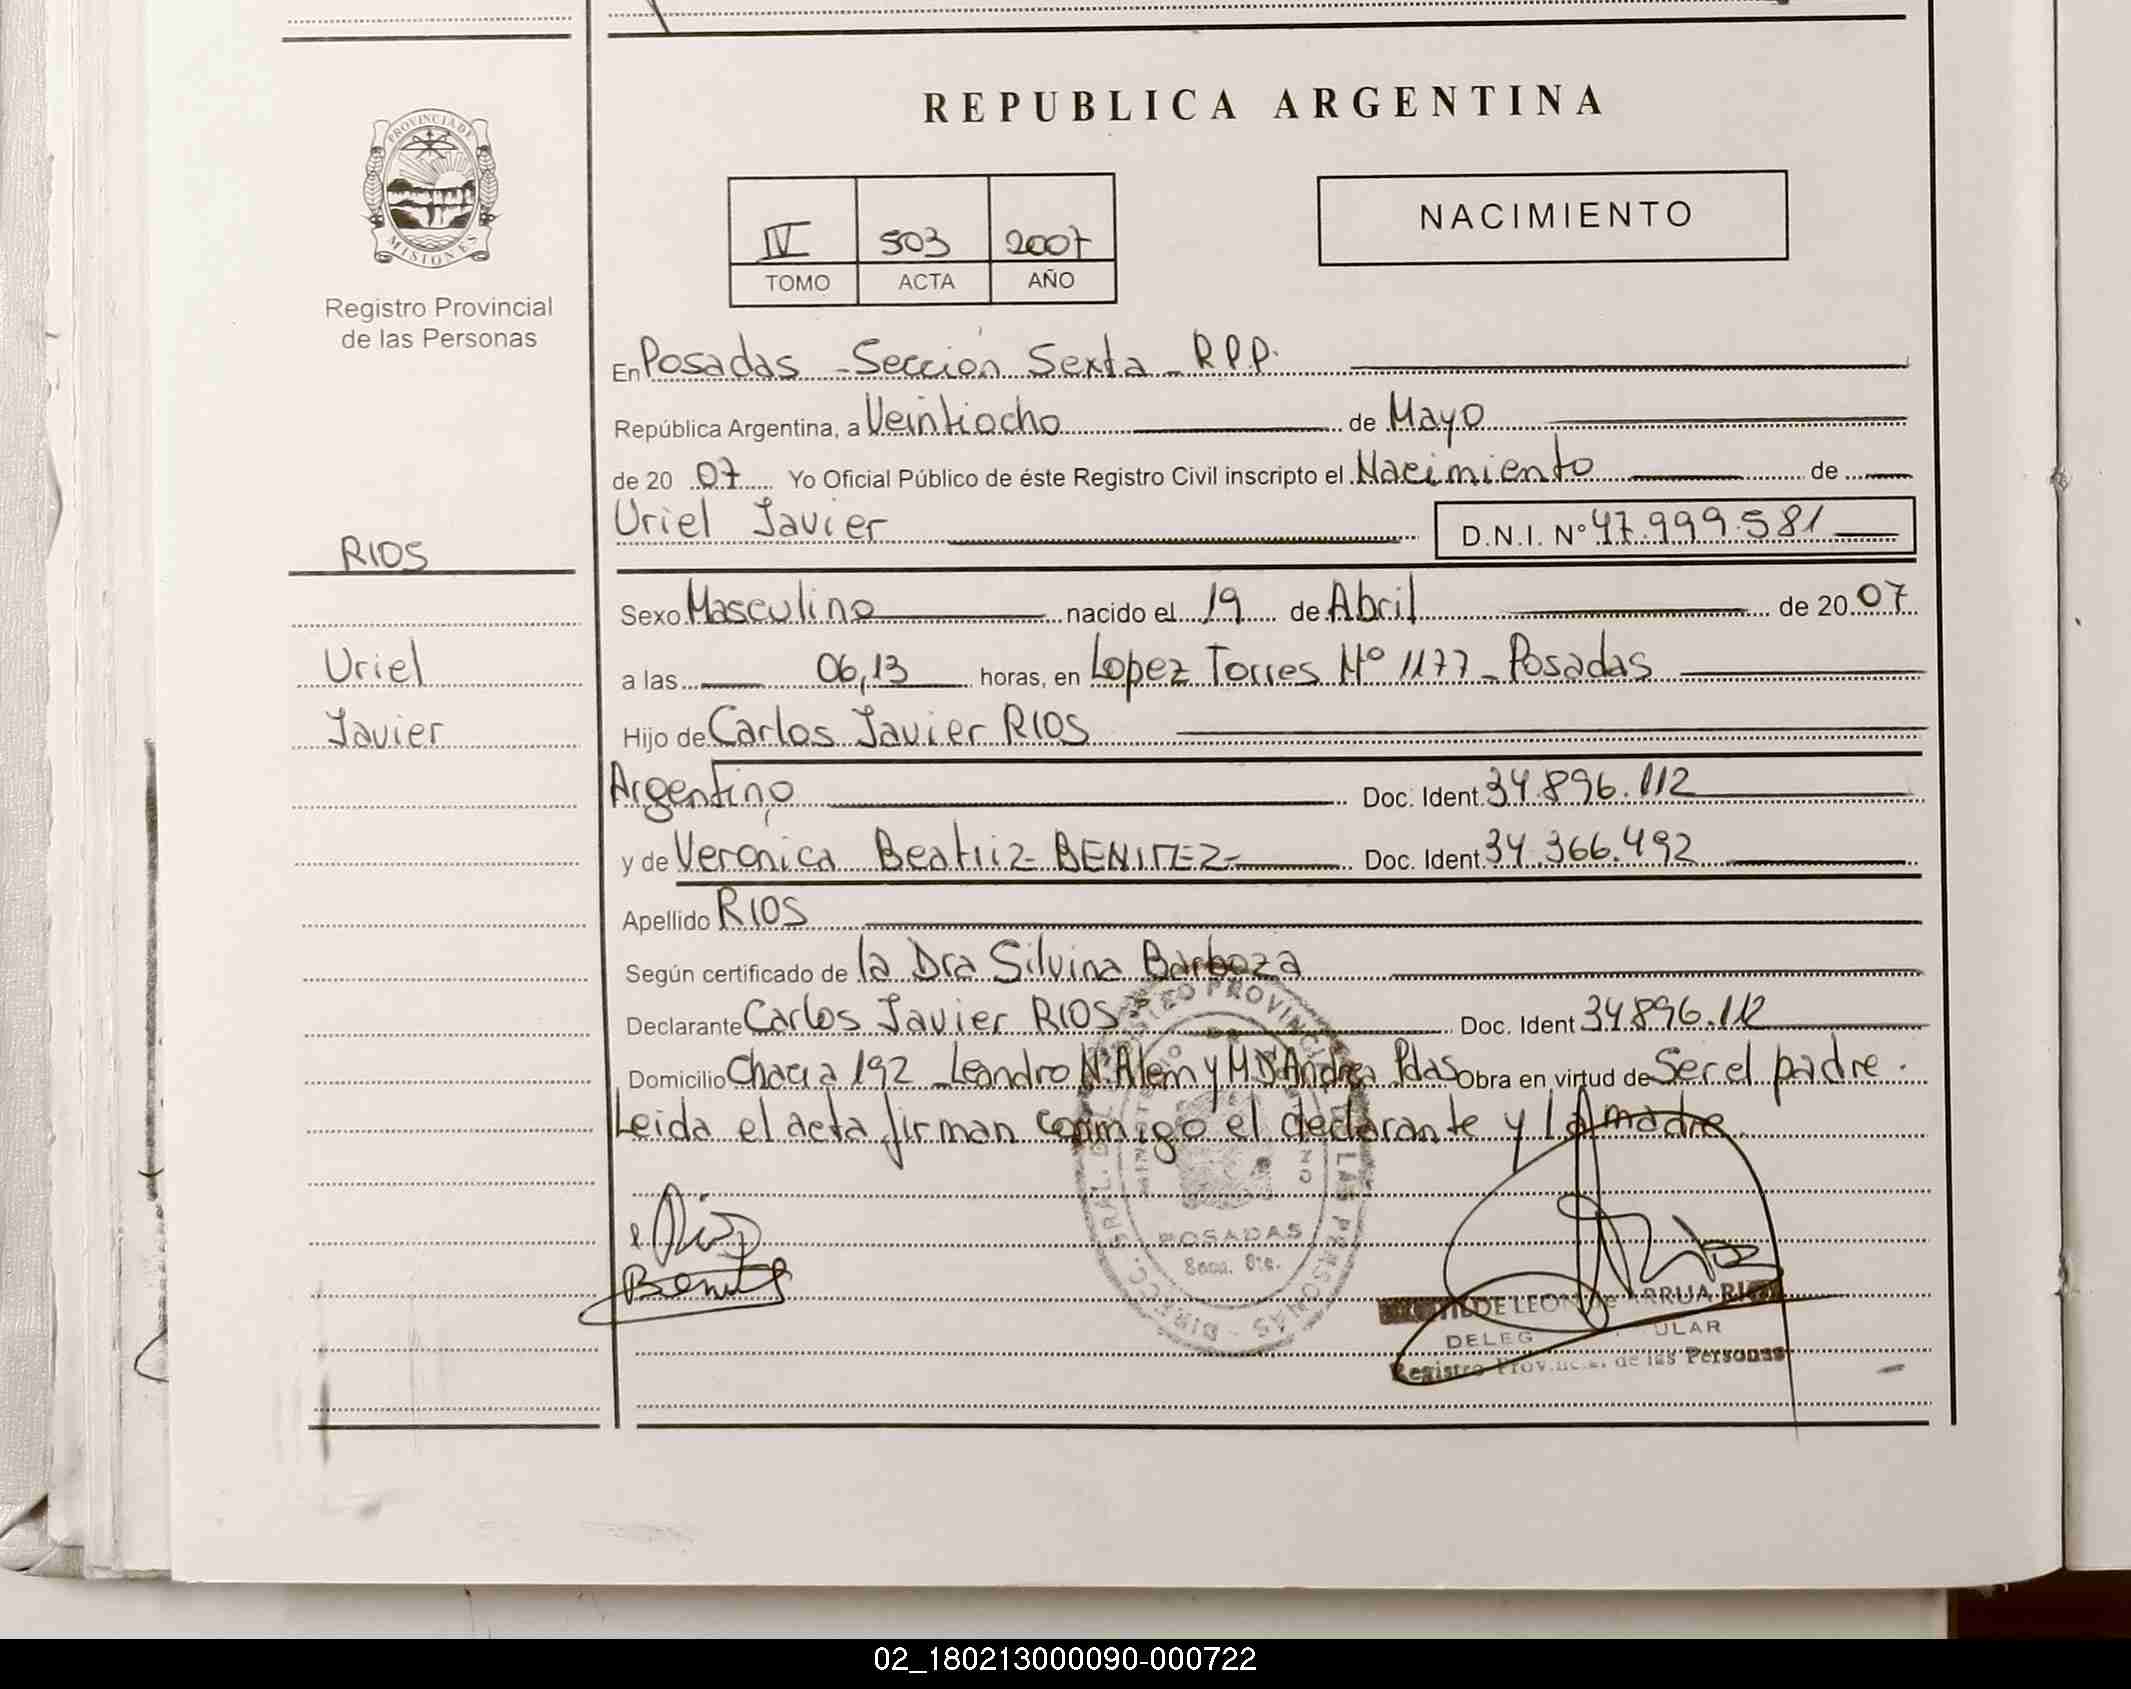 REPUBLICA ARGENTINA
PROVINCIA DE MISIONES
Registro Provincial
de las Personas
IV 503 2007
TOMO ACTA AÑO
NACIMIENTO
En Posadas - Sección Sexta - R.P.P.
República Argentina, a Veintiocho de Mayo
de 20 07 Yo Oficial Público de éste Registro Civil inscripto el Nacimiento de
Uriel Javier D.N.I. Nº 47.999.581
RIOS
Uriel
Javier
Sexo Masculino nacido el 19 de Abril de 20 07
a las 06,13 horas, en Lopez Torres Nº 1177 - Posadas
Hijo de Carlos Javier RIOS
Argentino Doc. Ident. 34.896.112
y de Verónica Beatriz BENITEZ Doc. Ident. 34.366.492
Apellido RIOS
Según certificado de la Dra Silvina Barboza
Declarante Carlos Javier RIOS Doc. Ident 34896.112
Domicilio Chacra 192 - Leandro N. Alem y M D'Andrea Pdas Obra en virtud de Ser el padre.
Leida el acta firman conmigo el declarante y la madre
Rios
Benitez
POSADAS
Secc. 6ta.
DE LEON de ARRUA RIOS
DELEG ULAR
Registro Provincial de las Personas
02_180213000090-000722